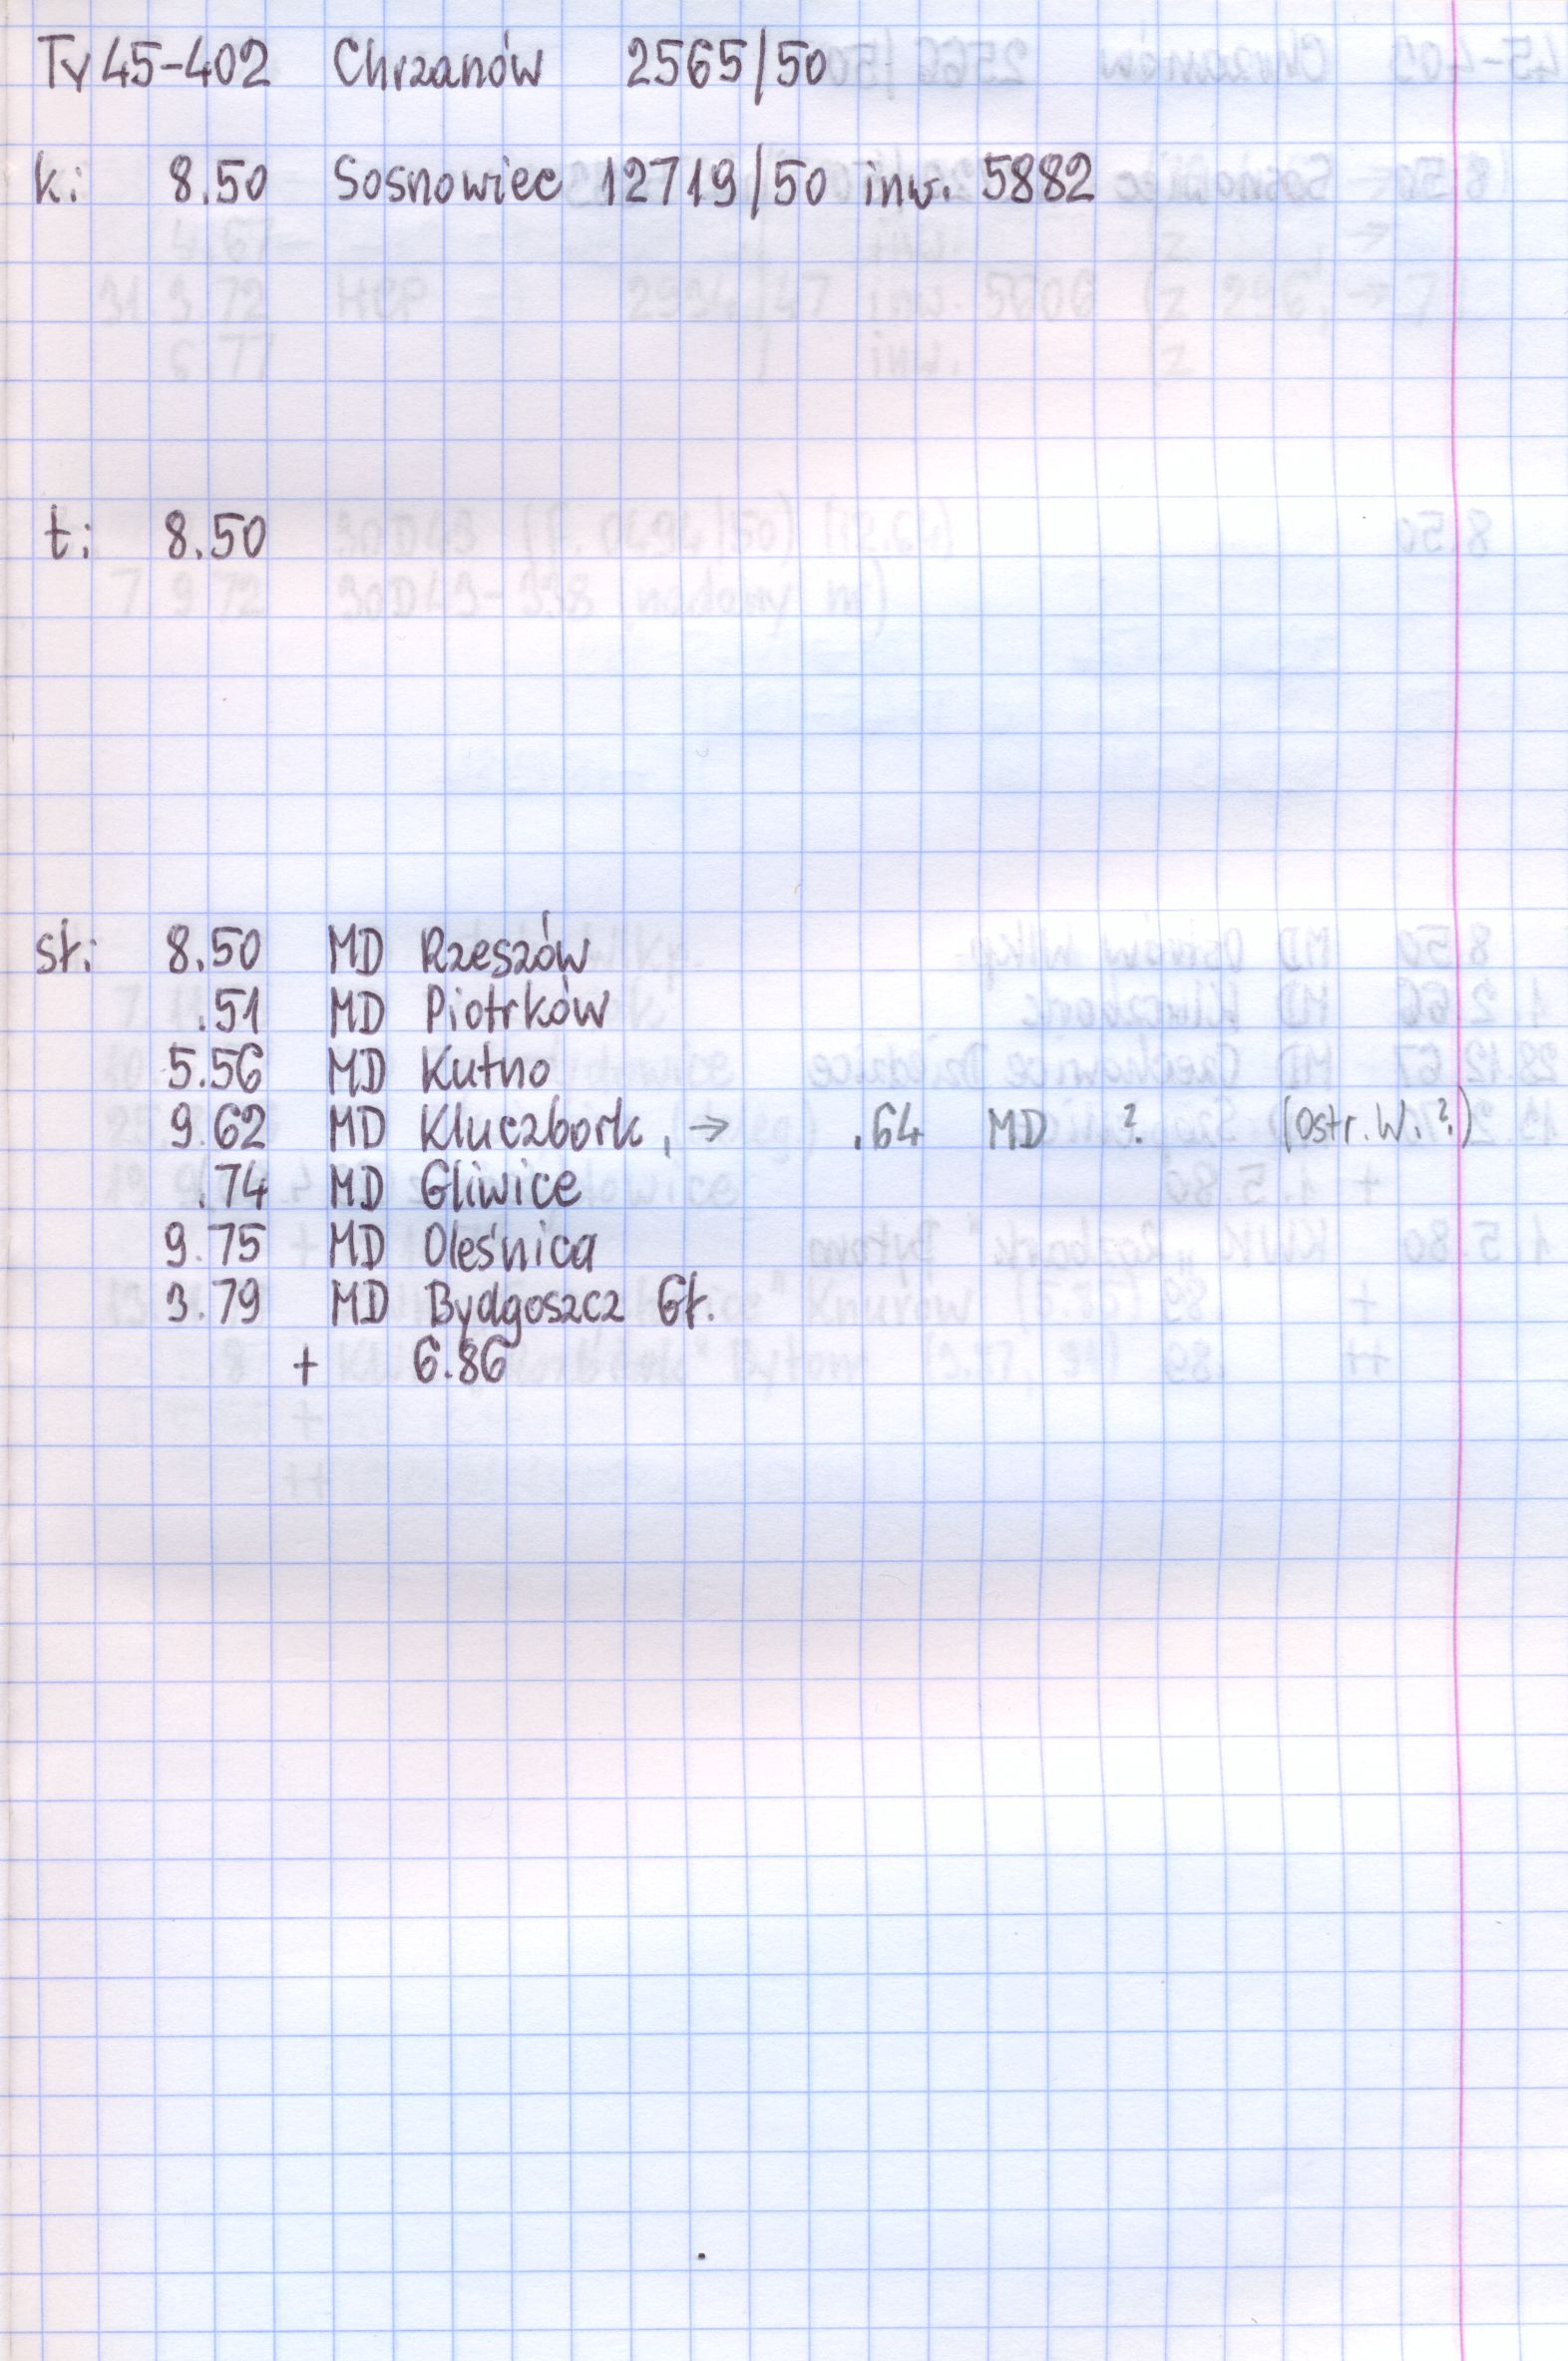 Ty45-402 Chrzanów 2565/50
k: 8.50 Sosnowiec 12719/50 inw. 5882
t: 8.50
st: 8.50 MD Rzeszów
.51 MD Piotrków
5.56 MD Kutno
9.62 MD Kluczbork, → .64 MD ? (Ostr. W. ?)
.74 MD Gliwice
9.75 MD Oleśnica
3.79 MD Bydgoszcz Gł.
+ 6.86